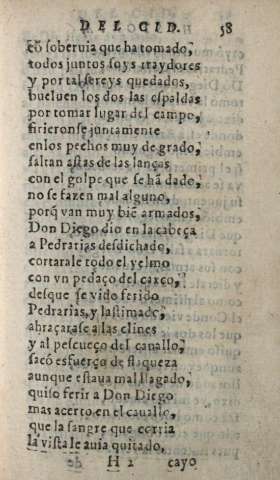 DEL CID. 58
cõ soberuia que ha tomado,
todos juntos soys traydores
y por tal sereys quedados,
bueluen los dos las espaldas
por tomar lugar del campo,
firieronse juntamente
enlos pechos muy de grado,
saltan astas de las lanças
con el golpe que se hã dado,
no se fazen mal alguno,
porq̃ van muy biẽ armados,
Don Diego dio en la cabeça
a Pedrarias desdichado,
cortarale todo el yelmo
con vn pedaço del caxco,
desque se vido ferido
Pedrarias, y lastimado,
abraçarase a las clines
y al pescueço del cauallo,
sacò esfuerço de flaqueza
aunque estaua mal llagado,
quiso ferir a Don Diego
mas acerto en el cauallo,
que la sangre que corria
la vista le auia quitado,
H 2 cayo